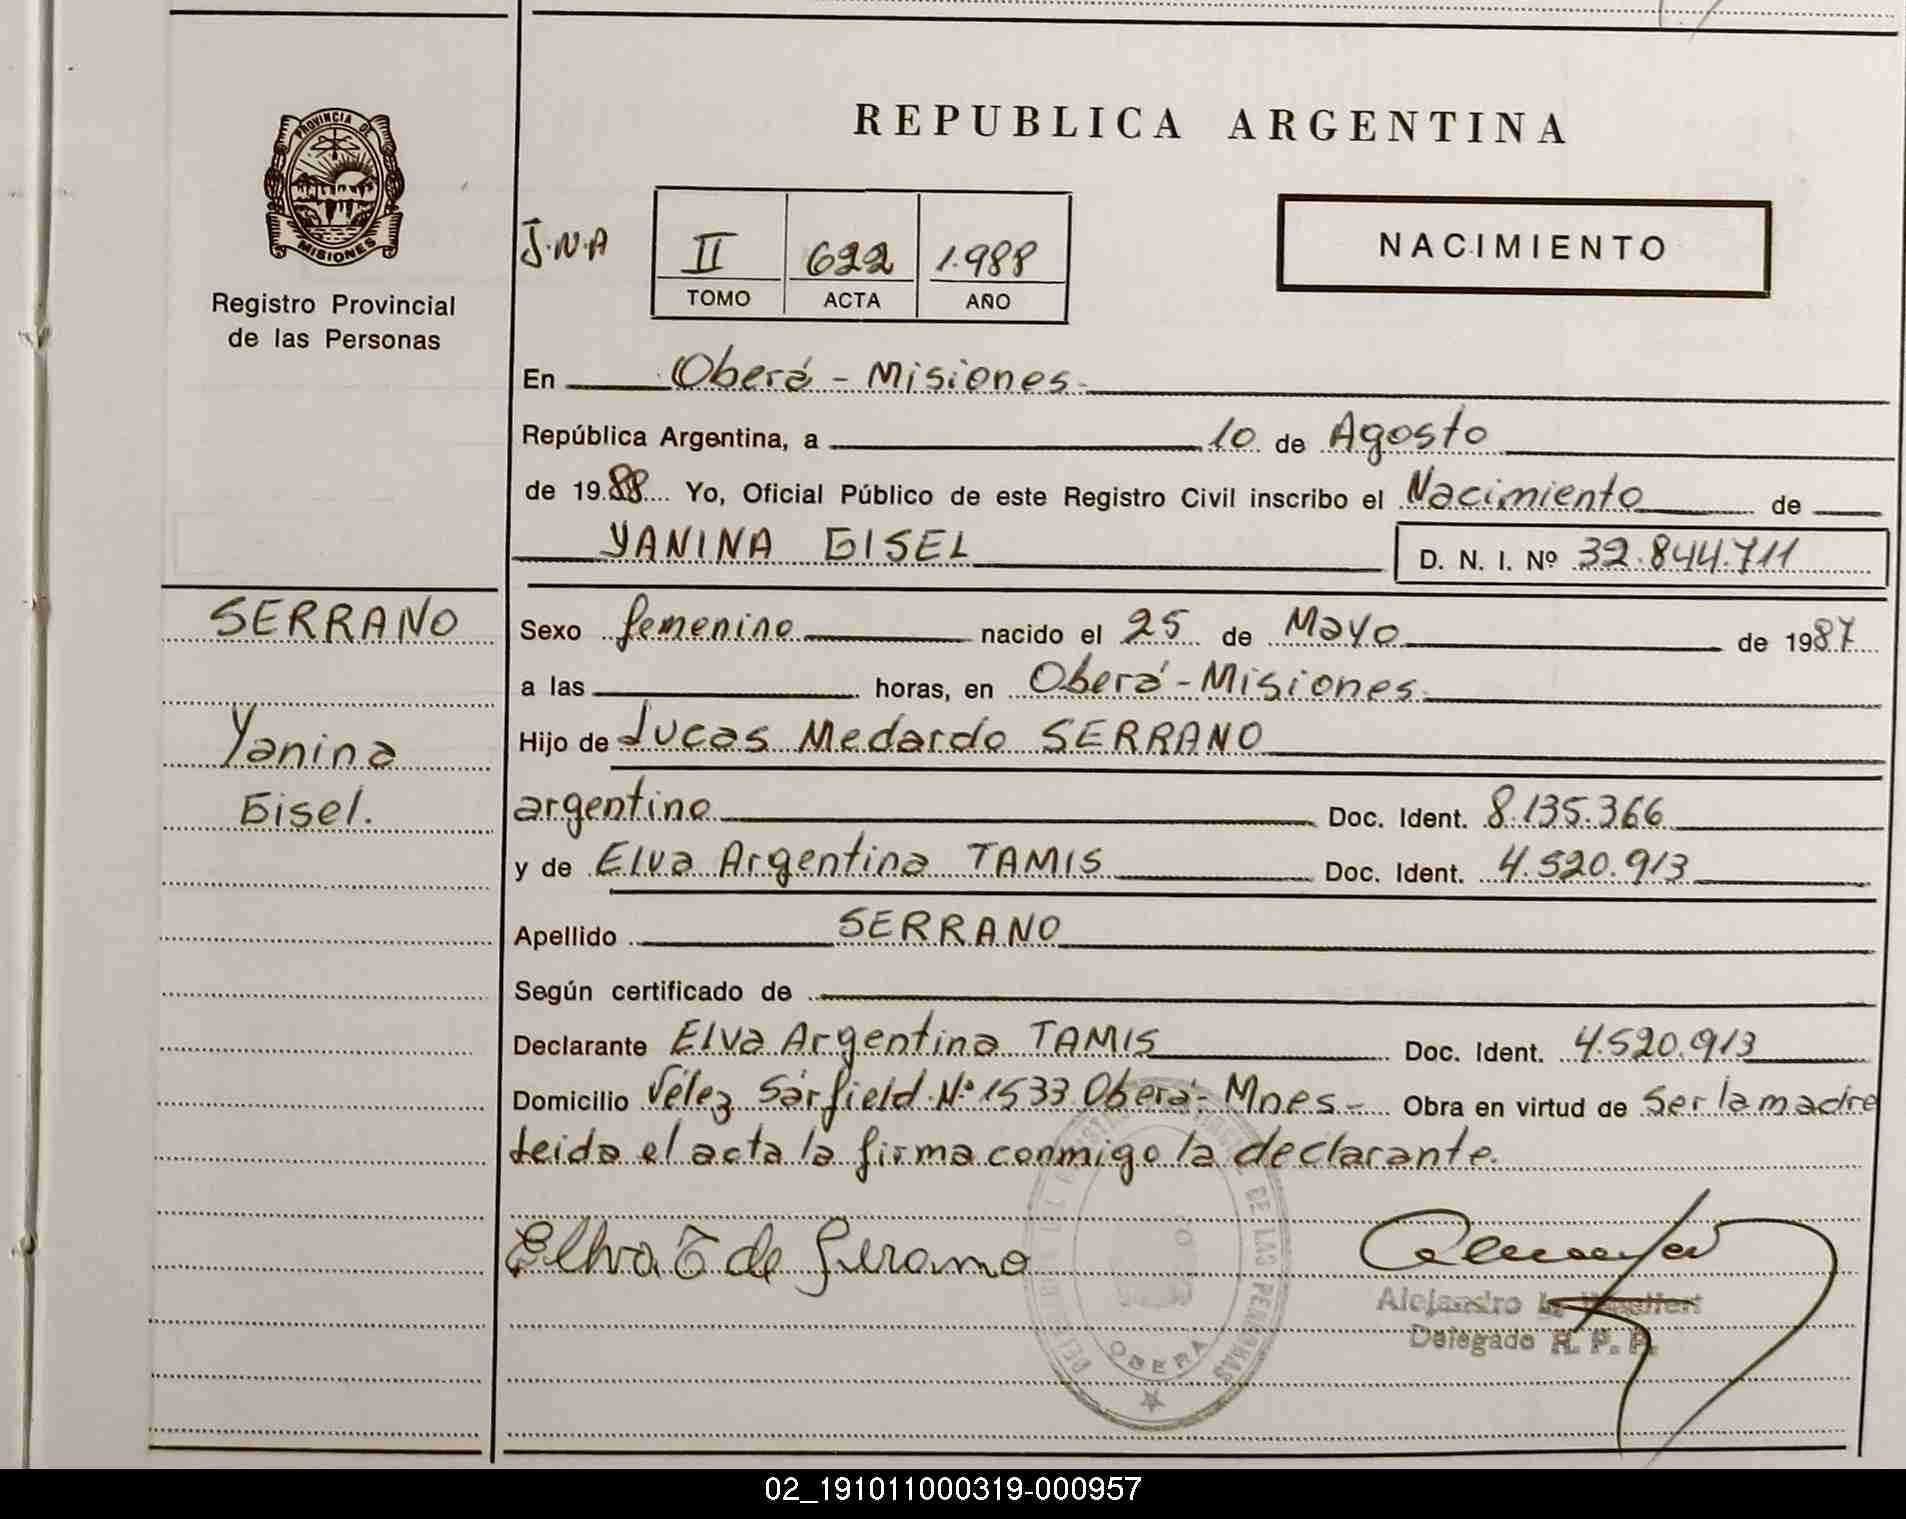 REPUBLICA ARGENTINA
PROVINCIA DE
MISIONES
Registro Provincial
de las Personas
J.N.A
II 622 1.988
TOMO ACTA AÑO
NACIMIENTO
En Oberá - Misiones.
República Argentina, a 10 de Agosto
de 1988 Yo, Oficial Público de este Registro Civil inscribo el Nacimiento de
YANINA GISEL D. N. I. Nº 32.844.711
SERRANO
Yanina
Gisel.
Sexo femenino nacido el 25 de Mayo de 1987
a las horas, en Oberá - Misiones.
Hijo de Lucas Medardo SERRANO
argentino Doc. Ident. 8.135.366
y de Elva Argentina TAMIS Doc. Ident. 4.520.913
Apellido SERRANO
Según certificado de
Declarante Elva Argentina TAMIS Doc. Ident. 4.520.913
Domicilio Vélez Sársfield Nº 1533 Oberá - Mnes - Obra en virtud de Ser la madre
Leida el acta la firma conmigo la declarante.
Elva T de Serrano
Alejandro
Delegado R. P. P.
DE LAS PERSONAS
OBERA
02_191011000319-000957